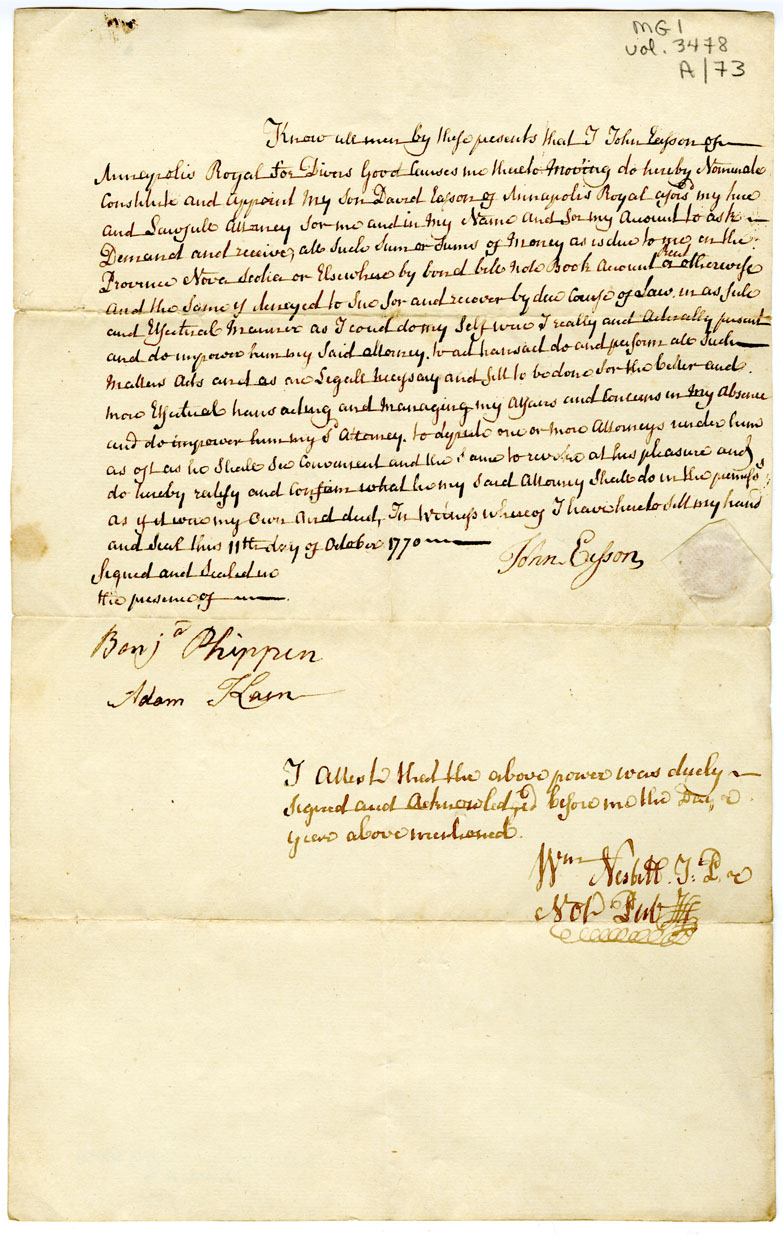 MG 1
vol. 3478
A/73
Know all men by these presents that I John Easson of
Annapolis Royal for Divers Good Causes me thereto Moving do hereby Nominate
Constitute and appoint My Son David Easson of Annapolis Royal afors^d my true
and Lawfull Attorney for me and in My Name and for my Account to ask
Demand and receive, all Such Sum or Sums of Money as is due to me, in the
Province Nova Scotia or Elsewhere by bond bill note Book Account or otherwise
And the Same if denyed to Sue for and recover by due Course of Law, in as full
and Effectual Manner as I coud do my Self was I really and Actually present
and do impower him my Said attorney, to act transact do and perform all Such
Matters Acts and as are Legall Necessary and fitt to be done for the better and
more Effectual transacting and Managing my Affairs and Concerns in My Absence
and do impower him my s^d Attorney, to depute one or more Attorneys under him
as oft as he Shall See Convenient and the same to revoke at his pleasure and
do hereby ratify and Confirm what he my Said Attorney Shall do in the premises
as if it was my Own Act and deed, In Witness whereof I have hereto Sett my hand
and Seal this 11th day of October 1770
John Easson
Signed and Sealed in
the presence of
Benj^a Phippen
Adam
I Attest that the above power was duely
Signed and Acknowledged before me the Day &
year above mentioned.
W^m Nesbitt. J: P. &
Not^y Pub